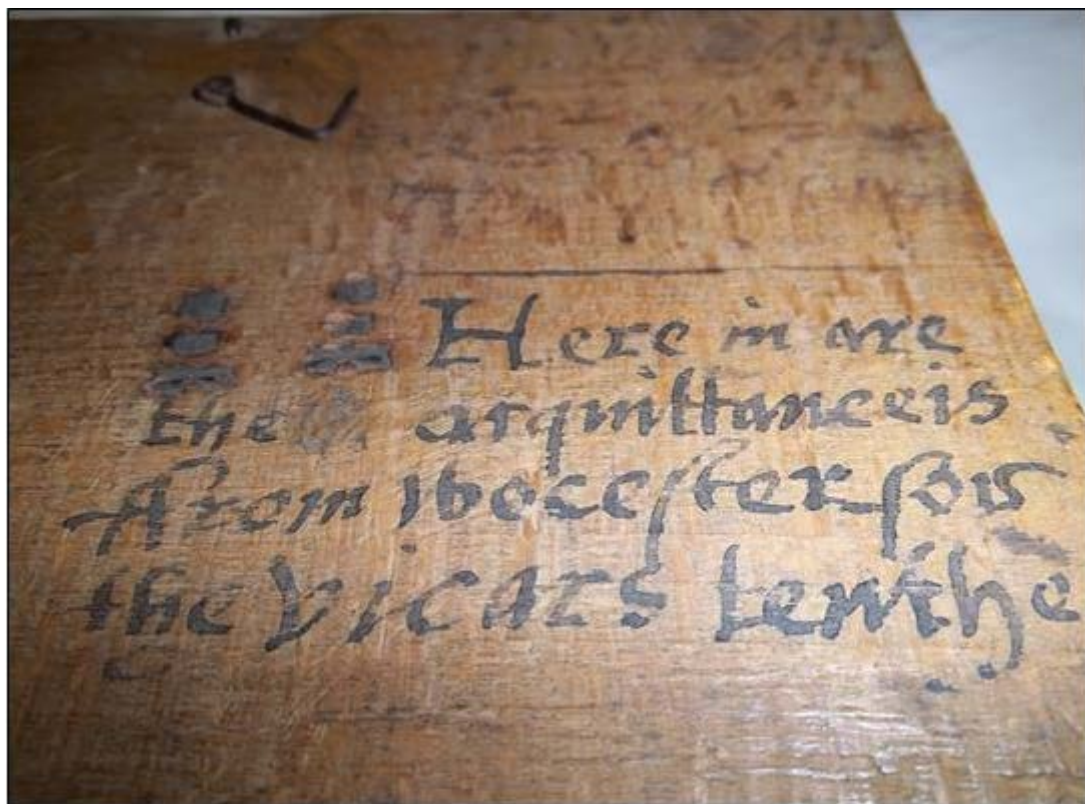 Here in are
the acquittanceis
From woceſter for
the Vicars tenthe